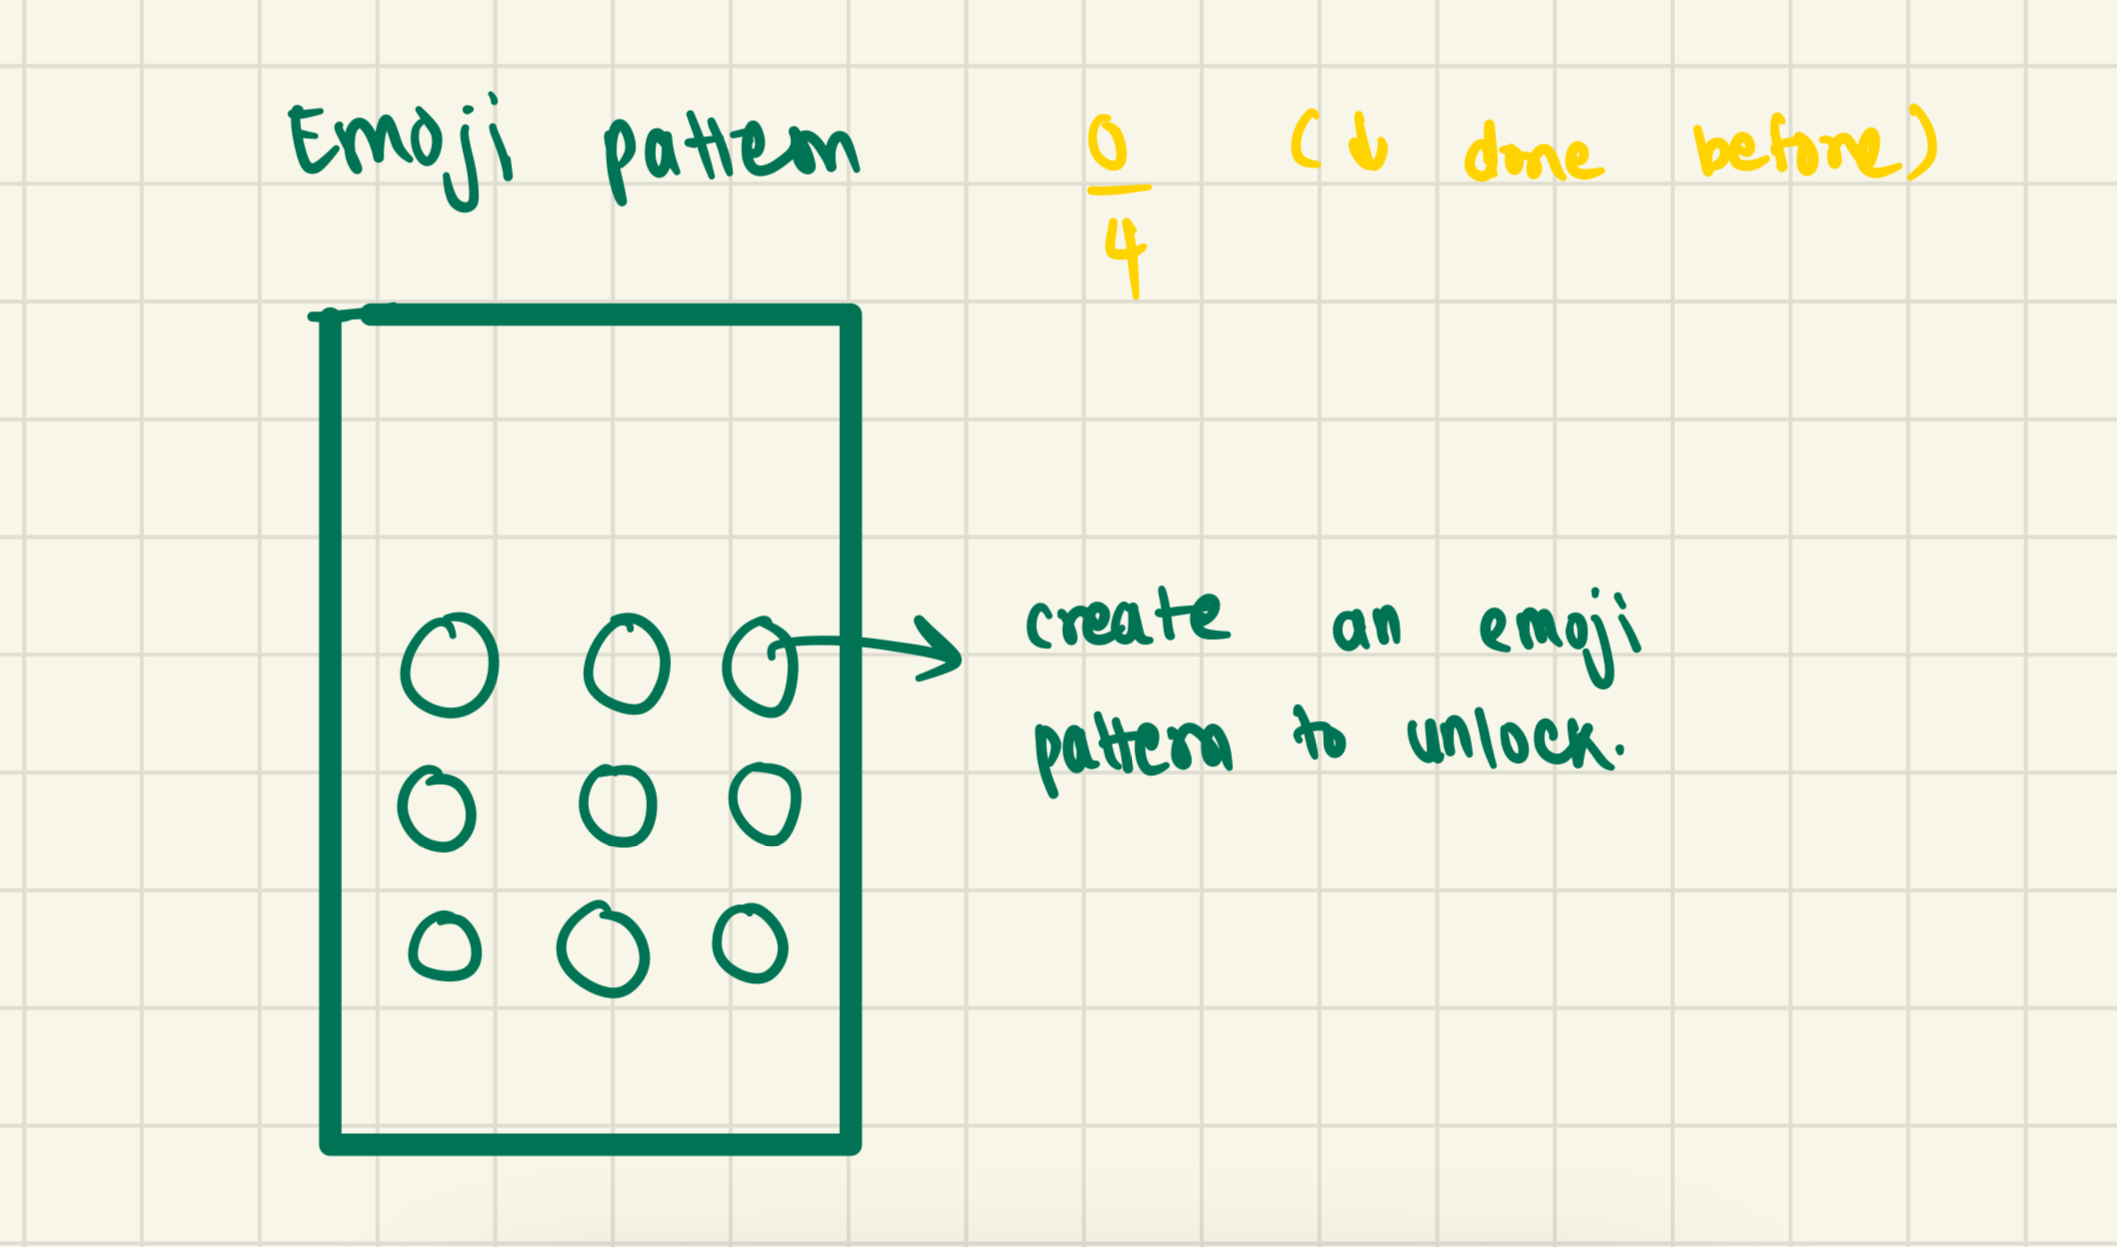 Emoji pattern
0
4
(↓ done before)
create an emoji
pattern to unlock.